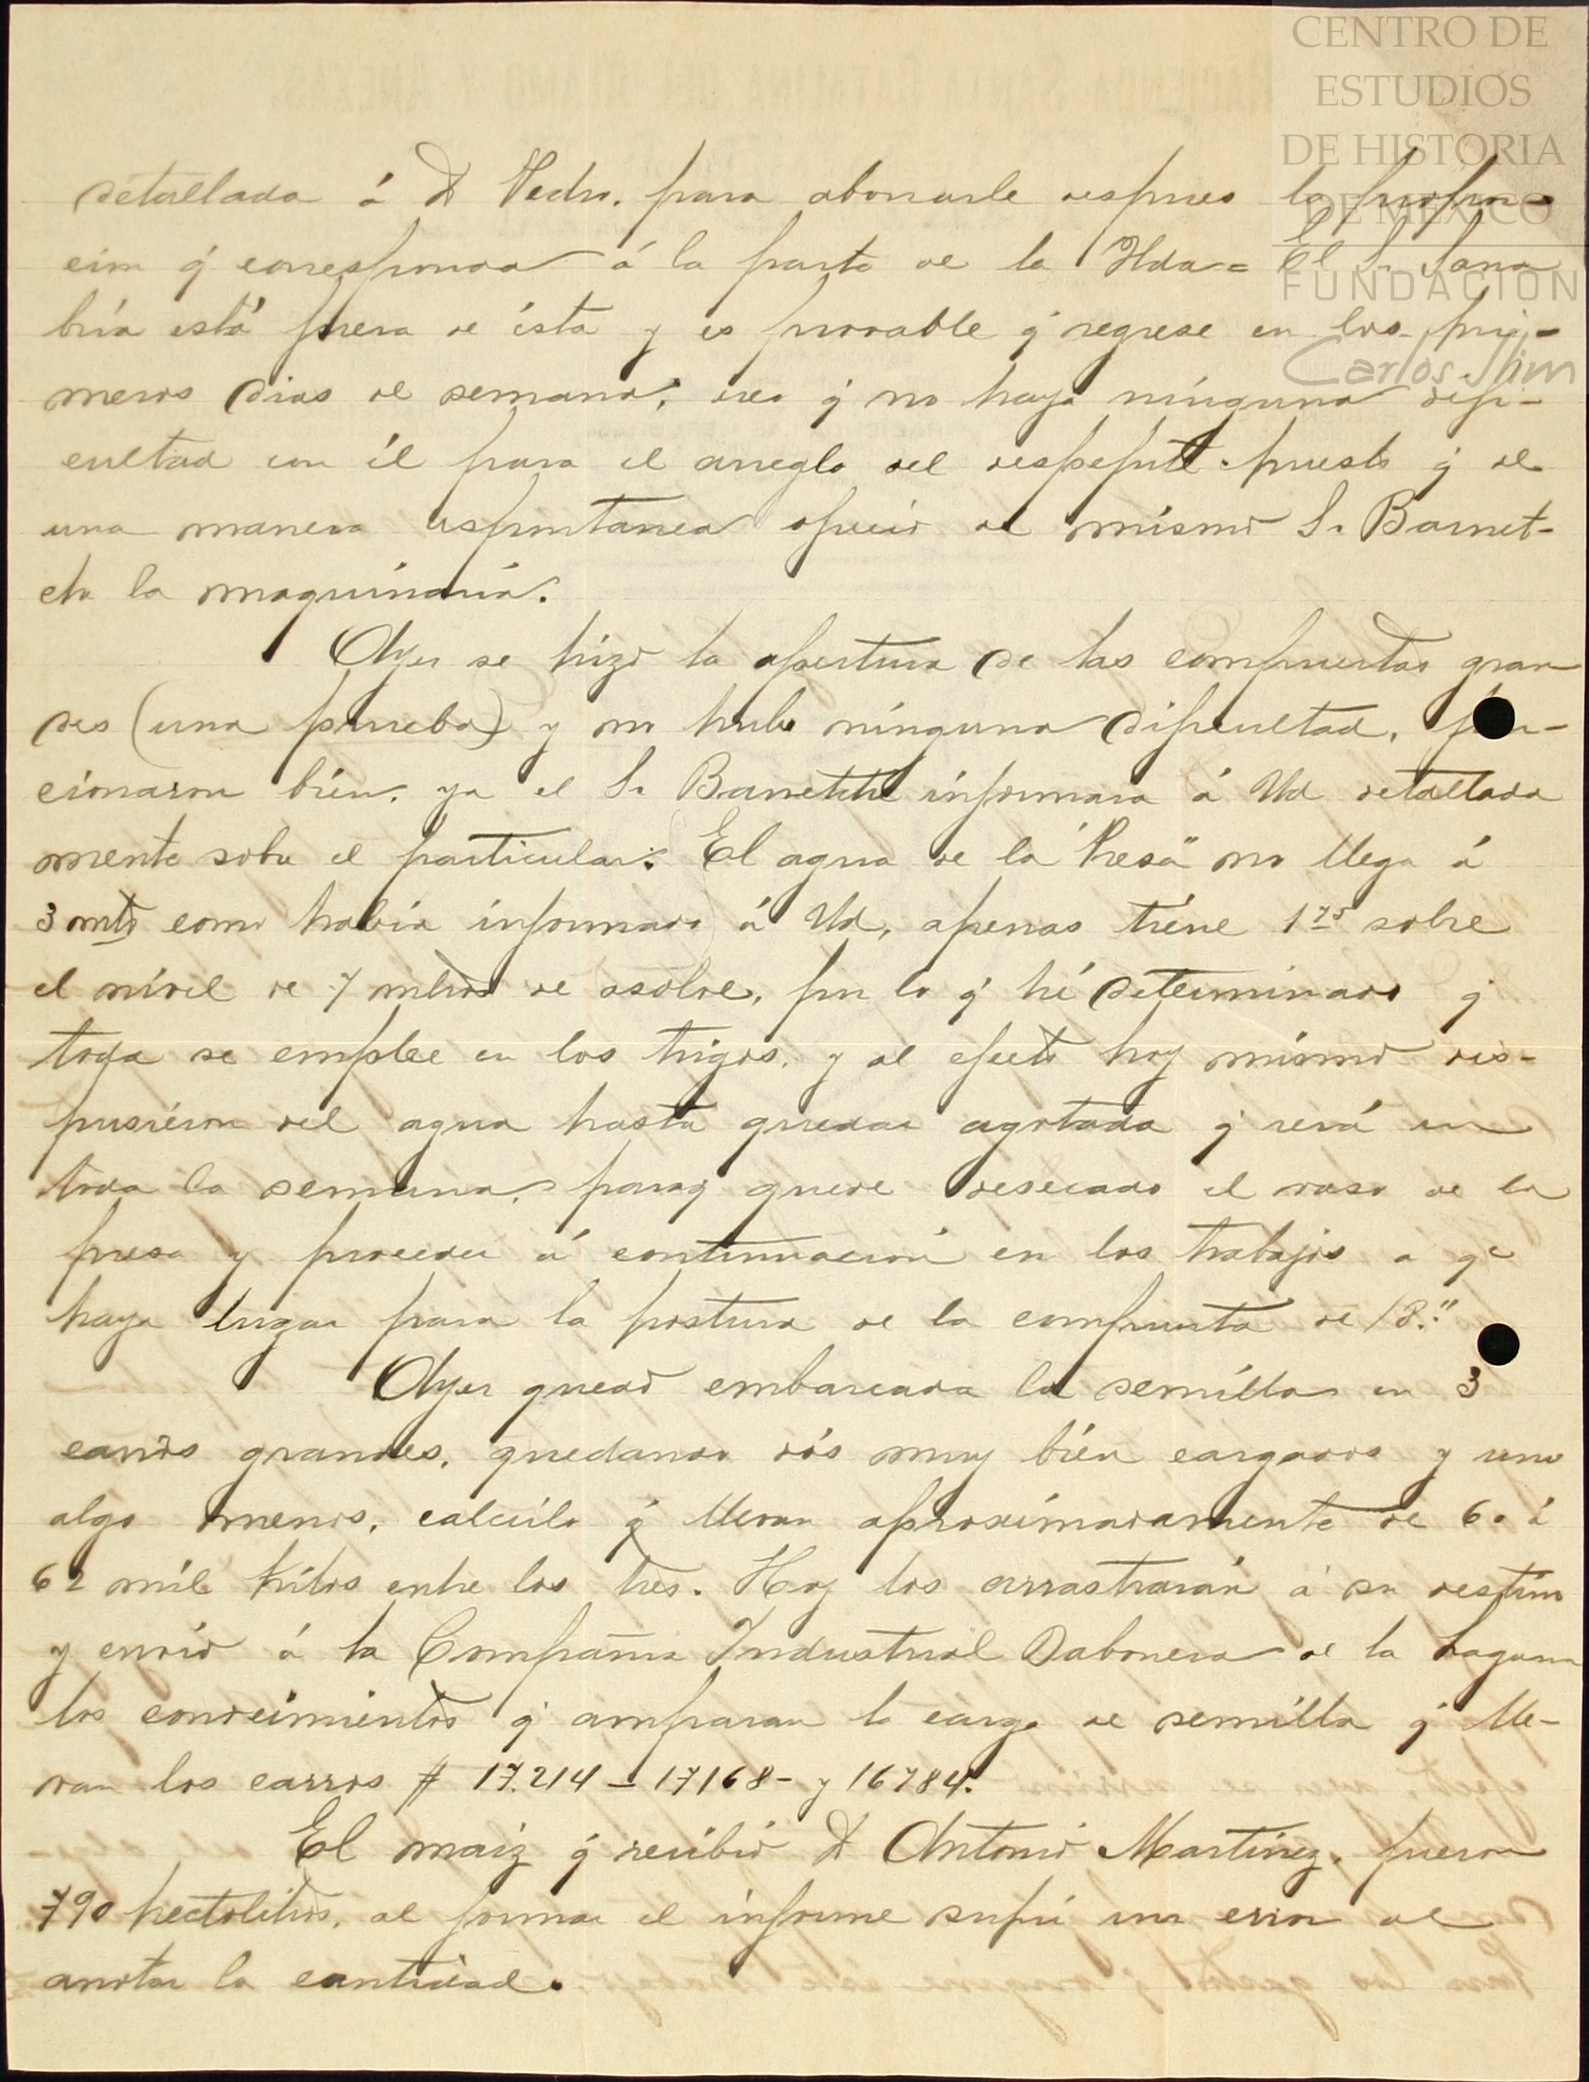 CENTRO DE
ESTUDIOS
DE HISTORIA
DE MÉXICO
FUNDACIÓN
Carlos Slim
detallada á D Pedro. para abonarle despues la propor-
cion q̃ corresponda á la parte de la Hda = El Sr Sana
bria está fuera de ésta y es provable q̃ regrese en los pri-
meros dias de semana; creo q̃ no haya ninguna difi-
cultad con él para el arreglo del puesto q̃ de
una manera espontanea ofrecio al mismo Sr Barnet-
che la maquinaria.
Ayer se hizo la apertura de las compuertas gran
des (una prueba) y no hubo ninguna dificultad, fun-
cionaron bién. ya el Sr Barnetche informara á Ud detallada
mente sobre el particular. El agua de la "Presa" no llega á
3 mts como habia informado á Ud, apenas tiene 1 75 sobre
el nivel de 7 metros de asolve, por lo q̃ hé determinado q̃
toda se emplee en los trigos. y al efecto hoy mismo dis-
pusieron del agua hasta quedar agotada q̃ será en
toda la semana. paraq̃ quede desecado el vaso de la
presa y proceder á continuación en los trabajos a qe
haya lugar para la postura de la compuerta de 18."
Ayer quedó embarcada la semilla en 3
carros grandes, quedando dós muy bién cargados y uno
algo menos, calculo q̃ llevan aproximadamente de 60 á
62 mil kilos entre los tres. Hoy los arrastrarán á su destino
y envio á la Compañia Industrial Jabonera de la Laguna
los conocimientos q̃ amparan la carga de semilla q̃ lle-
van los carros # 17.214 - 17168 - y 16784.
El maiz q̃ recibió D Antonio Martinez. fueron
790 hectolitros. al formar el informe sufri un error al
anotar la cantidad.